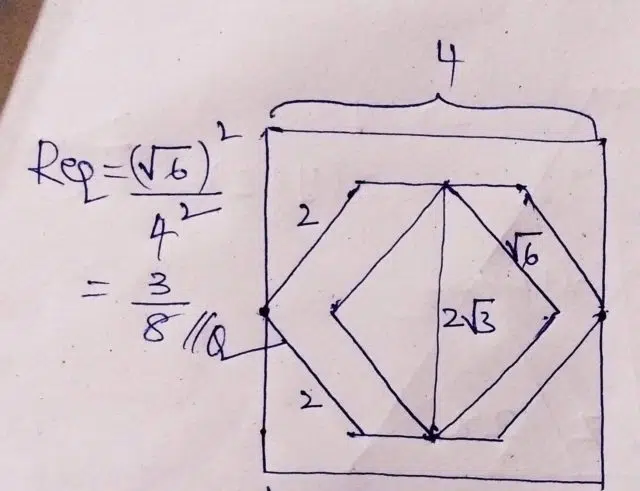 4
Req = (√6)²
4²
= 3
8 //Q
2
√6
2√3
2